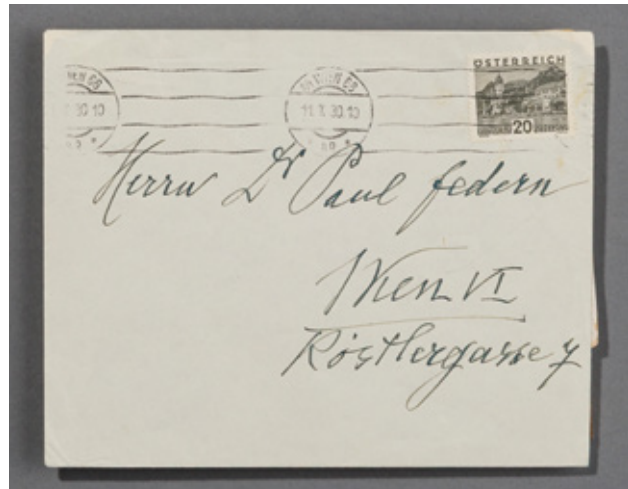 ÖSTERREICH
20
WIEN 66
11.X.30.10
Herrn Dr Paul Federn
Wien VI
Röstlergasse 7